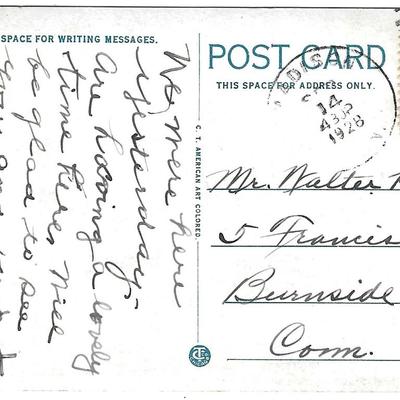 SPACE FOR WRITING MESSAGES.
POST CARD
THIS SPACE FOR ADDRESS ONLY.
14
1928
We were here
yesterday,
are having a lovely
time here, Will
be glad to see
you
C. T. AMERICAN ART COLORED.
Mr. Walter
5 Francis
Burnside
Conn.